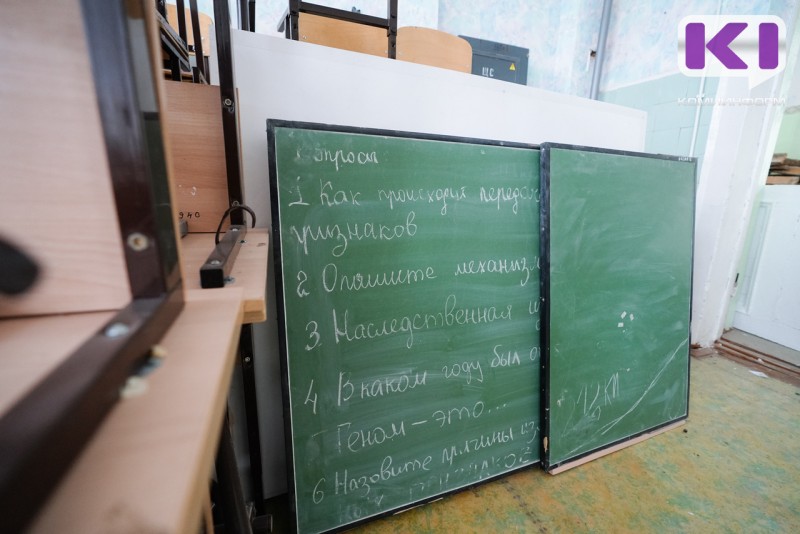 KI
КОМИИНФОРМ
ЩС
940
Вопросы
1 Как происходит передач
признаков
2 Опишите механизм
3. Наследственная
4 В каком году был о
Геном – это...
6 Назовите причины из
12 КП